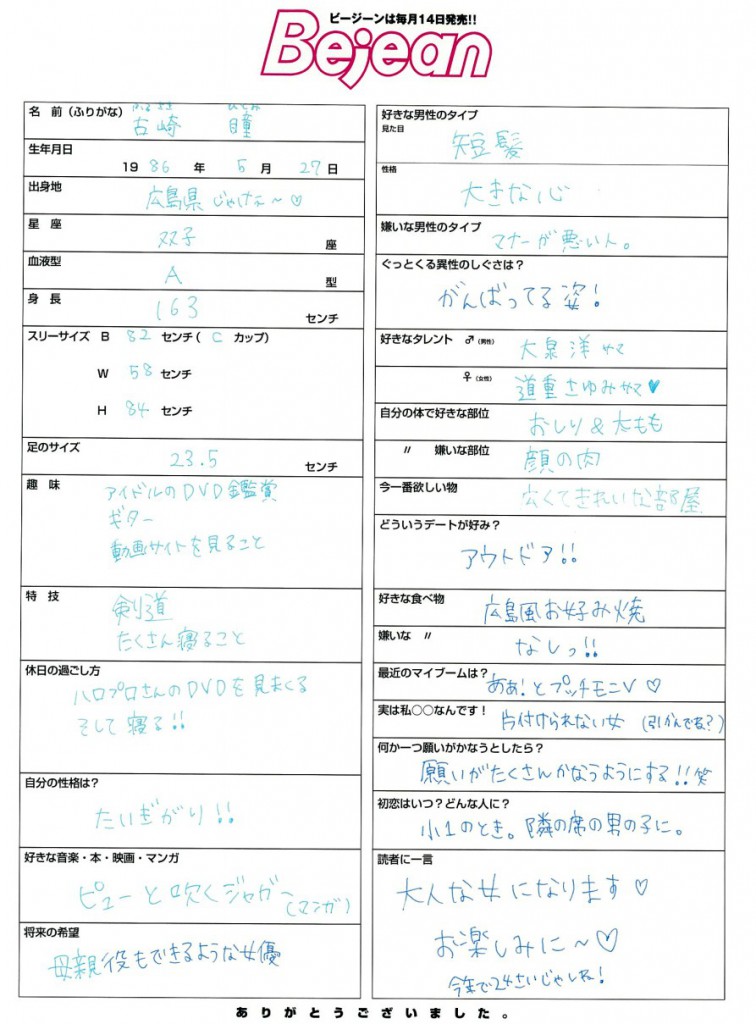 ビージーンは毎月14日発売!!
Bejean
名 前(ふりがな)
ふるさき ひとみ
古崎 瞳
生年月日
1986年 5月 27日
出身地
広島県じゃけぇ〜♡
星 座
双子 座
血液型
A 型
身 長
163 センチ
スリーサイズ B 82 センチ( C カップ)
W 58 センチ
H 84 センチ
足のサイズ
23.5 センチ
趣 味
アイドルのDVD鑑賞
ギター
動画サイトを見ること
特 技
剣道
たくさん寝ること
休日の過ごし方
ハロプロさんのDVDを見まくる
そして寝る!!
自分の性格は?
たいぎがり!!
好きな音楽・本・映画・マンガ
ピューと吹くジャガー
(マンガ)
将来の希望
母親役もできるような女優
好きな男性のタイプ
見た目
短髪
性格
大きな心
嫌いな男性のタイプ
マナーが悪い人。
ぐっとくる異性のしぐさは?
がんばってる姿!
好きなタレント ♂(男性) 大泉洋サマ
♀(女性) 道重さゆみサマ♥
自分の体で好きな部位
おしり&太もも
〃 嫌いな部位
顔の肉
今一番欲しい物
広くてきれいな部屋
どういうデートが好み?
アウトドア!!
好きな食べ物
広島風お好み焼
嫌いな 〃
なしっ!!
最近のマイブームは?
あぁ!とプッチモニV♡
実は私○○なんです!
片付けられない女 (引かんでね?)
何か一つ願いがかなうとしたら?
願いがたくさんかなうようにする!!笑
初恋はいつ?どんな人に?
小1のとき。隣の席の男の子に。
読者に一言
大人な女になります♡
お楽しみに〜♡
今年で24さいじゃしね!
ありがとうございました。